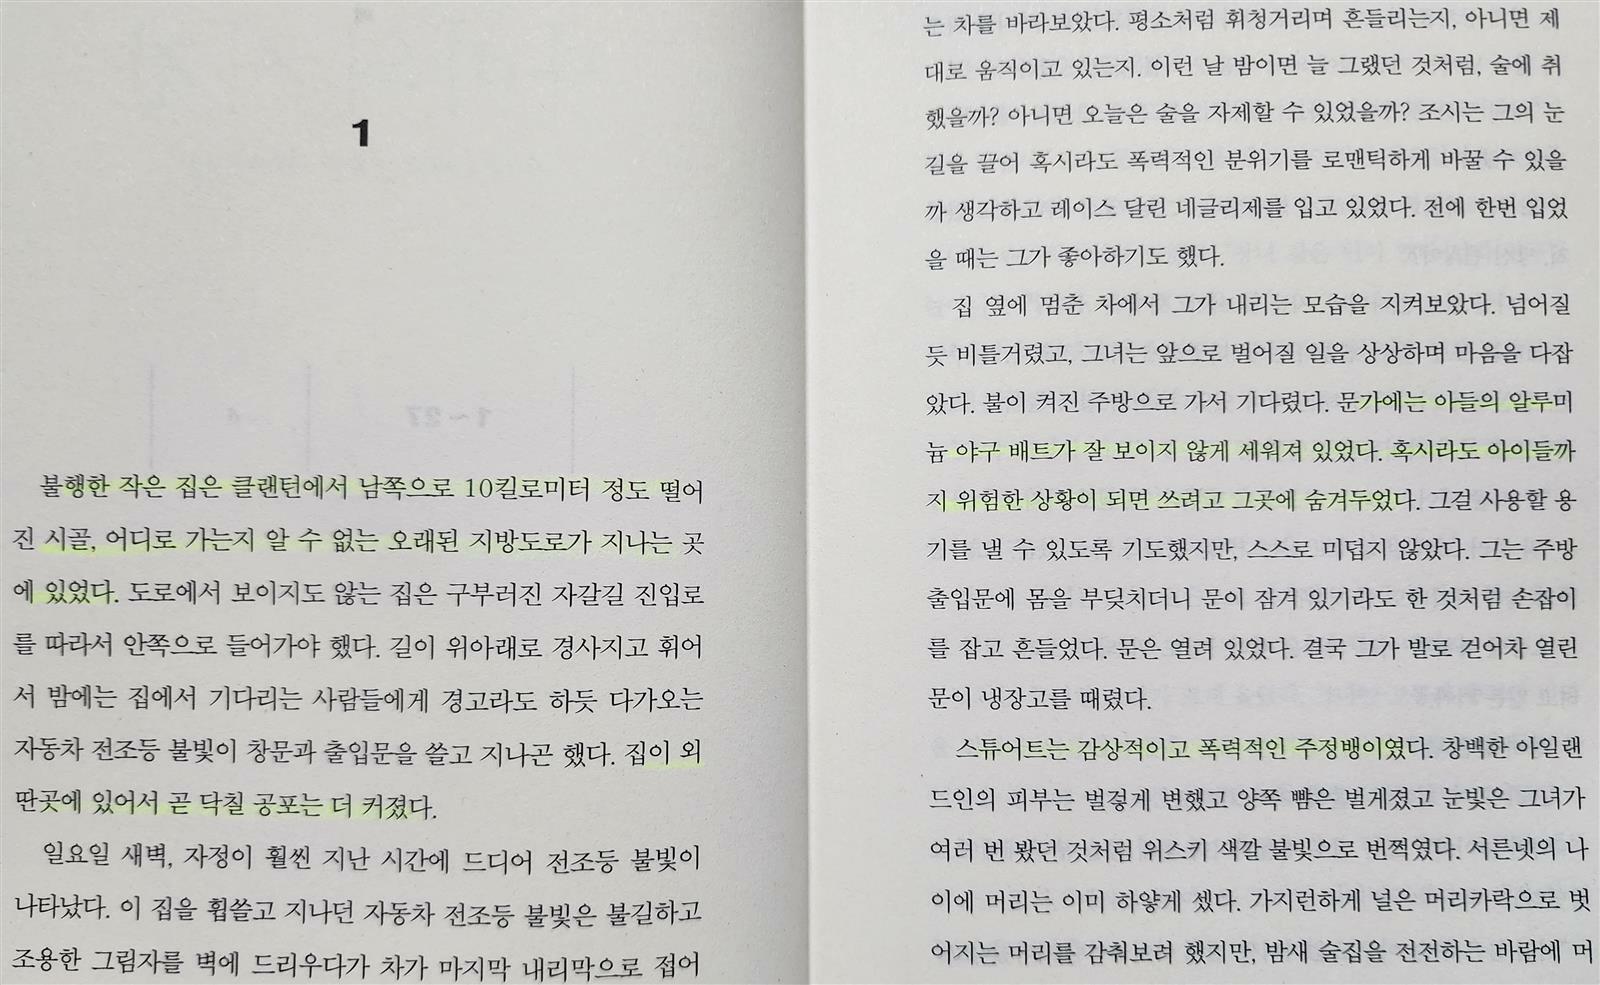 1
불행한 작은 집은 클랜턴에서 남쪽으로 10킬로미터 정도 떨어
진 시골, 어디로 가는지 알 수 없는 오래된 지방도로가 지나는 곳
에 있었다. 도로에서 보이지도 않는 집은 구부러진 자갈길 진입로
를 따라서 안쪽으로 들어가야 했다. 길이 위아래로 경사지고 휘어
서 밤에는 집에서 기다리는 사람들에게 경고라도 하듯 다가오는
자동차 전조등 불빛이 창문과 출입문을 쓸고 지나곤 했다. 집이 외
딴곳에 있어서 곧 닥칠 공포는 더 커졌다.
일요일 새벽, 자정이 훨씬 지난 시간에 드디어 전조등 불빛이
나타났다. 이 집을 휩쓸고 지나던 자동차 전조등 불빛은 불길하고
조용한 그림자를 벽에 드리우다가 차가 마지막 내리막으로 접어
는 차를 바라보았다. 평소처럼 휘청거리며 흔들리는지, 아니면 제
대로 움직이고 있는지. 이런 날 밤이면 늘 그랬던 것처럼, 술에 취
했을까? 아니면 오늘은 술을 자제할 수 있었을까? 조시는 그의 눈
길을 끌어 혹시라도 폭력적인 분위기를 로맨틱하게 바꿀 수 있을
까 생각하고 레이스 달린 네글리제를 입고 있었다. 전에 한번 입었
을 때는 그가 좋아하기도 했다.
집 옆에 멈춘 차에서 그가 내리는 모습을 지켜보았다. 넘어질
듯 비틀거렸고, 그녀는 앞으로 벌어질 일을 상상하며 마음을 다잡
았다. 불이 켜진 주방으로 가서 기다렸다. 문가에는 아들의 알루미
늄 야구 배트가 잘 보이지 않게 세워져 있었다. 혹시라도 아이들까
지 위험한 상황이 되면 쓰려고 그곳에 숨겨두었다. 그걸 사용할 용
기를 낼 수 있도록 기도했지만, 스스로 미덥지 않았다. 그는 주방
출입문에 몸을 부딪치더니 문이 잠겨 있기라도 한 것처럼 손잡이
를 잡고 흔들었다. 문은 열려 있었다. 결국 그가 발로 걷어차 열린
문이 냉장고를 때렸다.
스튜어트는 감상적이고 폭력적인 주정뱅이였다. 창백한 아일랜
드인의 피부는 벌겋게 변했고 양쪽 뺨은 벌게졌고 눈빛은 그녀가
여러 번 봤던 것처럼 위스키 색깔 불빛으로 번쩍였다. 서른넷의 나
이에 머리는 이미 하얗게 셌다. 가지런하게 널은 머리카락으로 벗
어지는 머리를 감춰보려 했지만, 밤새 술집을 전전하는 바람에 머